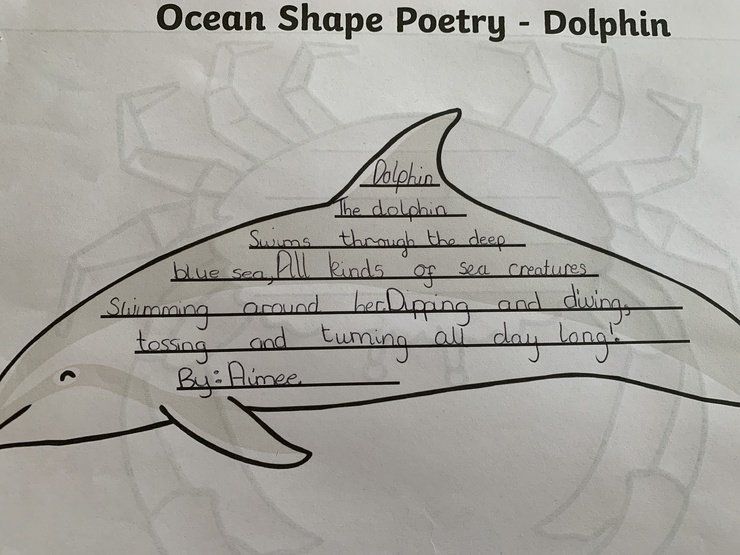 Ocean Shape Poetry - Dolphin
Dolphin
The dolphin
Swims through the deep
blue sea, All kinds of sea creatures
Swimming around her. Dipping and diving,
tossing and turning all day long!
By: Aimee